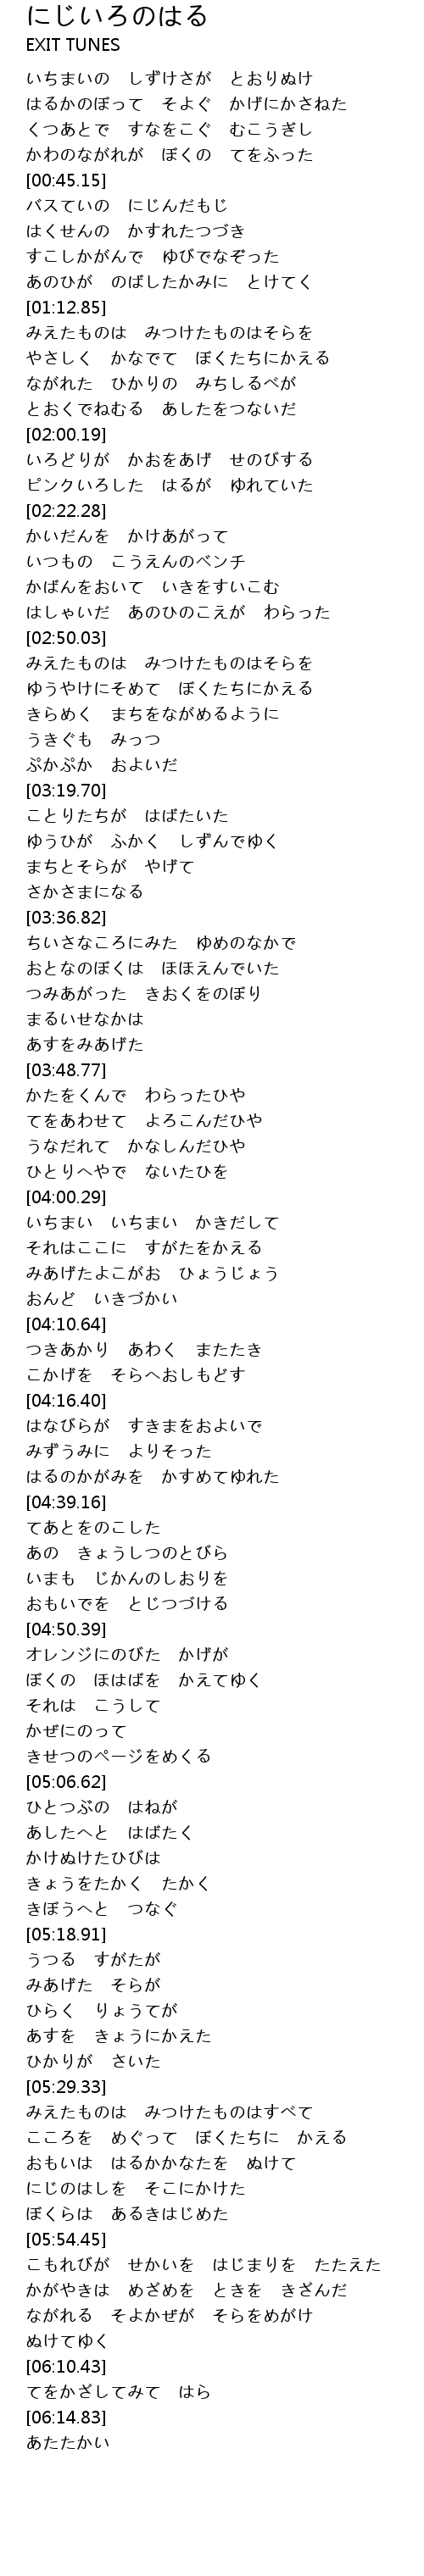 にじいろのはる
EXIT TUNES
いちまいの　しずけさが　とおりぬけ
はるかのぼって　そよぐ　かげにかさねた
くつあとで　すなをこぐ　むこうぎし
かわのながれが　ぼくの　てをふった
[00:45.15]
バスていの　にじんだもじ
はくせんの　かすれたつづき
すこしかがんで　ゆびでなぞった
あのひが　のばしたかみに　とけてく
[01:12.85]
みえたものは　みつけたものはそらを
やさしく　かなでて　ぼくたちにかえる
ながれた　ひかりの　みちしるべが
とおくでねむる　あしたをつないだ
[02:00.19]
いろどりが　かおをあげ　せのびする
ピンクいろした　はるが　ゆれていた
[02:22.28]
かいだんを　かけあがって
いつもの　こうえんのベンチ
かばんをおいて　いきをすいこむ
はしゃいだ　あのひのこえが　わらった
[02:50.03]
みえたものは　みつけたものはそらを
ゆうやけにそめて　ぼくたちにかえる
きらめく　まちをながめるように
うきぐも　みっつ
ぷかぷか　およいだ
[03:19.70]
ことりたちが　はばたいた
ゆうひが　ふかく　しずんでゆく
まちとそらが　やげて
さかさまになる
[03:36.82]
ちいさなころにみた　ゆめのなかで
おとなのぼくは　ほほえんでいた
つみあがった　きおくをのぼり
まるいせなかは
あすをみあげた
[03:48.77]
かたをくんで　わらったひや
てをあわせて　よろこんだひや
うなだれて　かなしんだひや
ひとりへやで　ないたひを
[04:00.29]
いちまい　いちまい　かきだして
それはここに　すがたをかえる
みあげたよこがお　ひょうじょう
おんど　いきづかい
[04:10.64]
つきあかり　あわく　またたき
こかげを　そらへおしもどす
[04:16.40]
はなびらが　すきまをおよいで
みずうみに　よりそった
はるのかがみを　かすめてゆれた
[04:39.16]
てあとをのこした
あの　きょうしつのとびら
いまも　じかんのしおりを
おもいでを　とじつづける
[04:50.39]
オレンジにのびた　かげが
ぼくの　ほはばを　かえてゆく
それは　こうして
かぜにのって
きせつのページをめくる
[05:06.62]
ひとつぶの　はねが
あしたへと　はばたく
かけぬけたひびは
きょうをたかく　たかく
きぼうへと　つなぐ
[05:18.91]
うつる　すがたが
みあげた　そらが
ひらく　りょうてが
あすを　きょうにかえた
ひかりが　さいた
[05:29.33]
みえたものは　みつけたものはすべて
こころを　めぐって　ぼくたちに　かえる
おもいは　はるかかなたを　ぬけて
にじのはしを　そこにかけた
ぼくらは　あるきはじめた
[05:54.45]
こもれびが　せかいを　はじまりを　たたえた
かがやきは　めざめを　ときを　きざんだ
ながれる　そよかぜが　そらをめがけ
ぬけてゆく
[06:10.43]
てをかざしてみて　はら
[06:14.83]
あたたかい